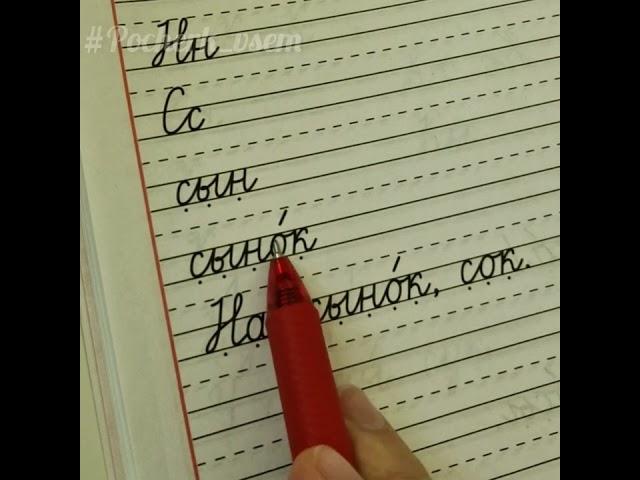 #Pocherk_vsem
Нн
Сс
сын
сыно́к
На, сыно́к, сок.